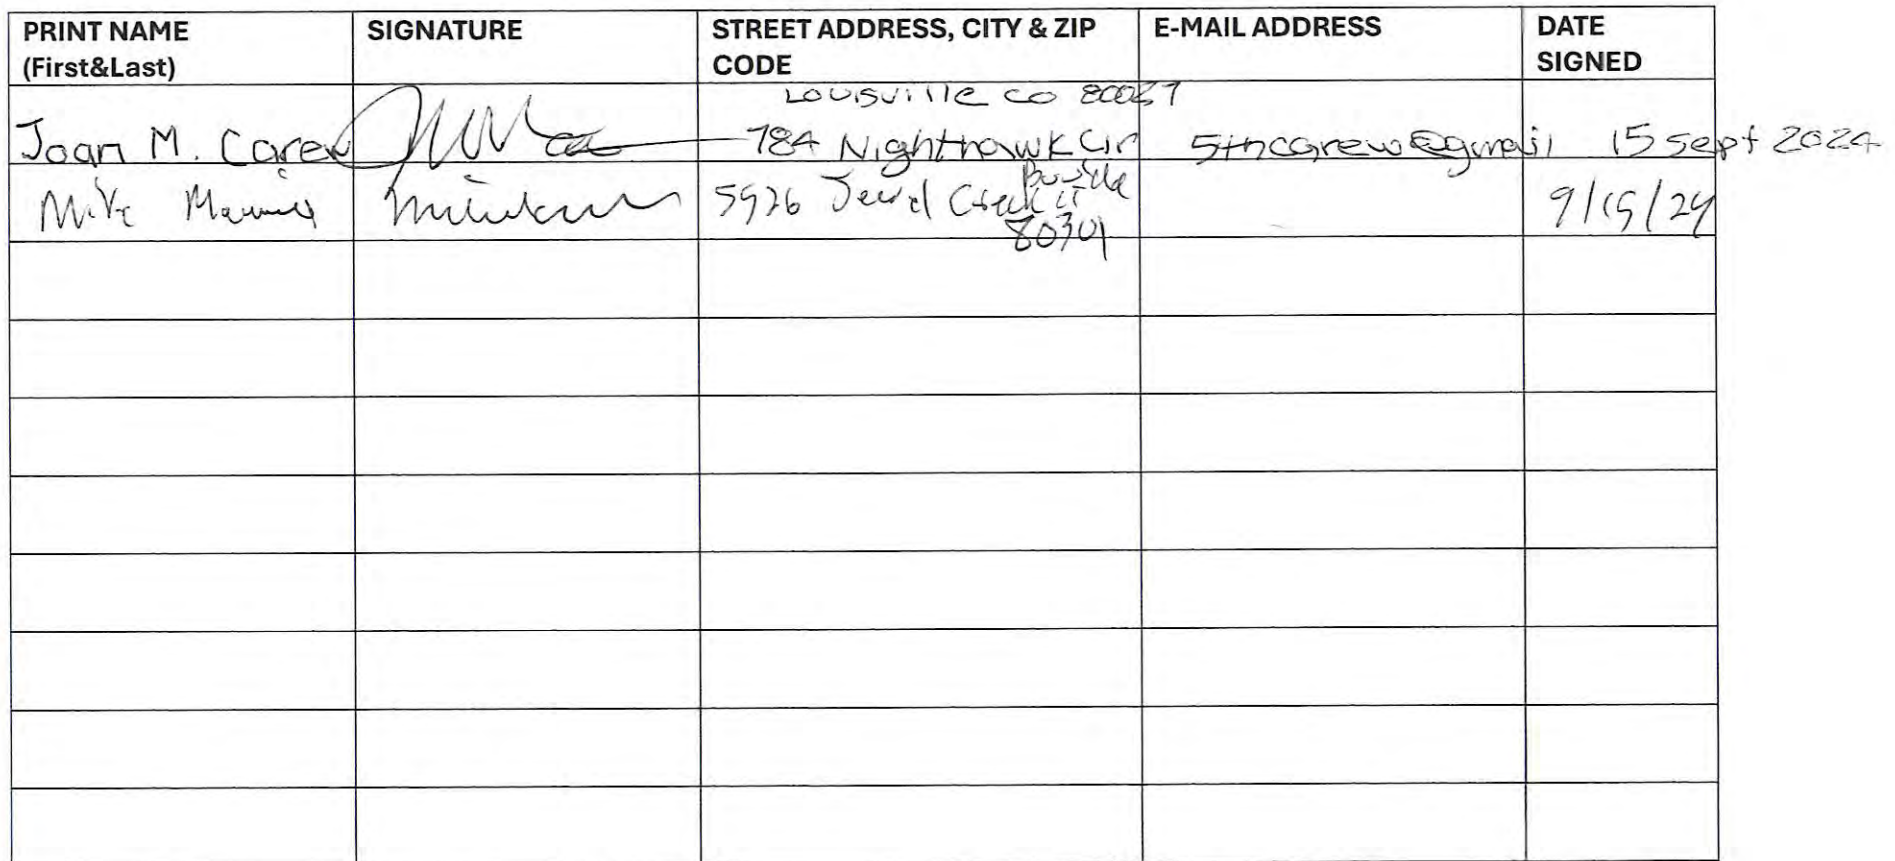 PRINT NAME
(First&Last)
SIGNATURE
STREET ADDRESS, CITY & ZIP
CODE
E-MAIL ADDRESS
DATE
SIGNED
Louisville CO 80027
Joan M. Carew
784 Nighthawk Cir
5thcarew@gmail
15 Sept 2024
Mike
5926 Jewel Creek Ct
Boulder
80301
9/15/24